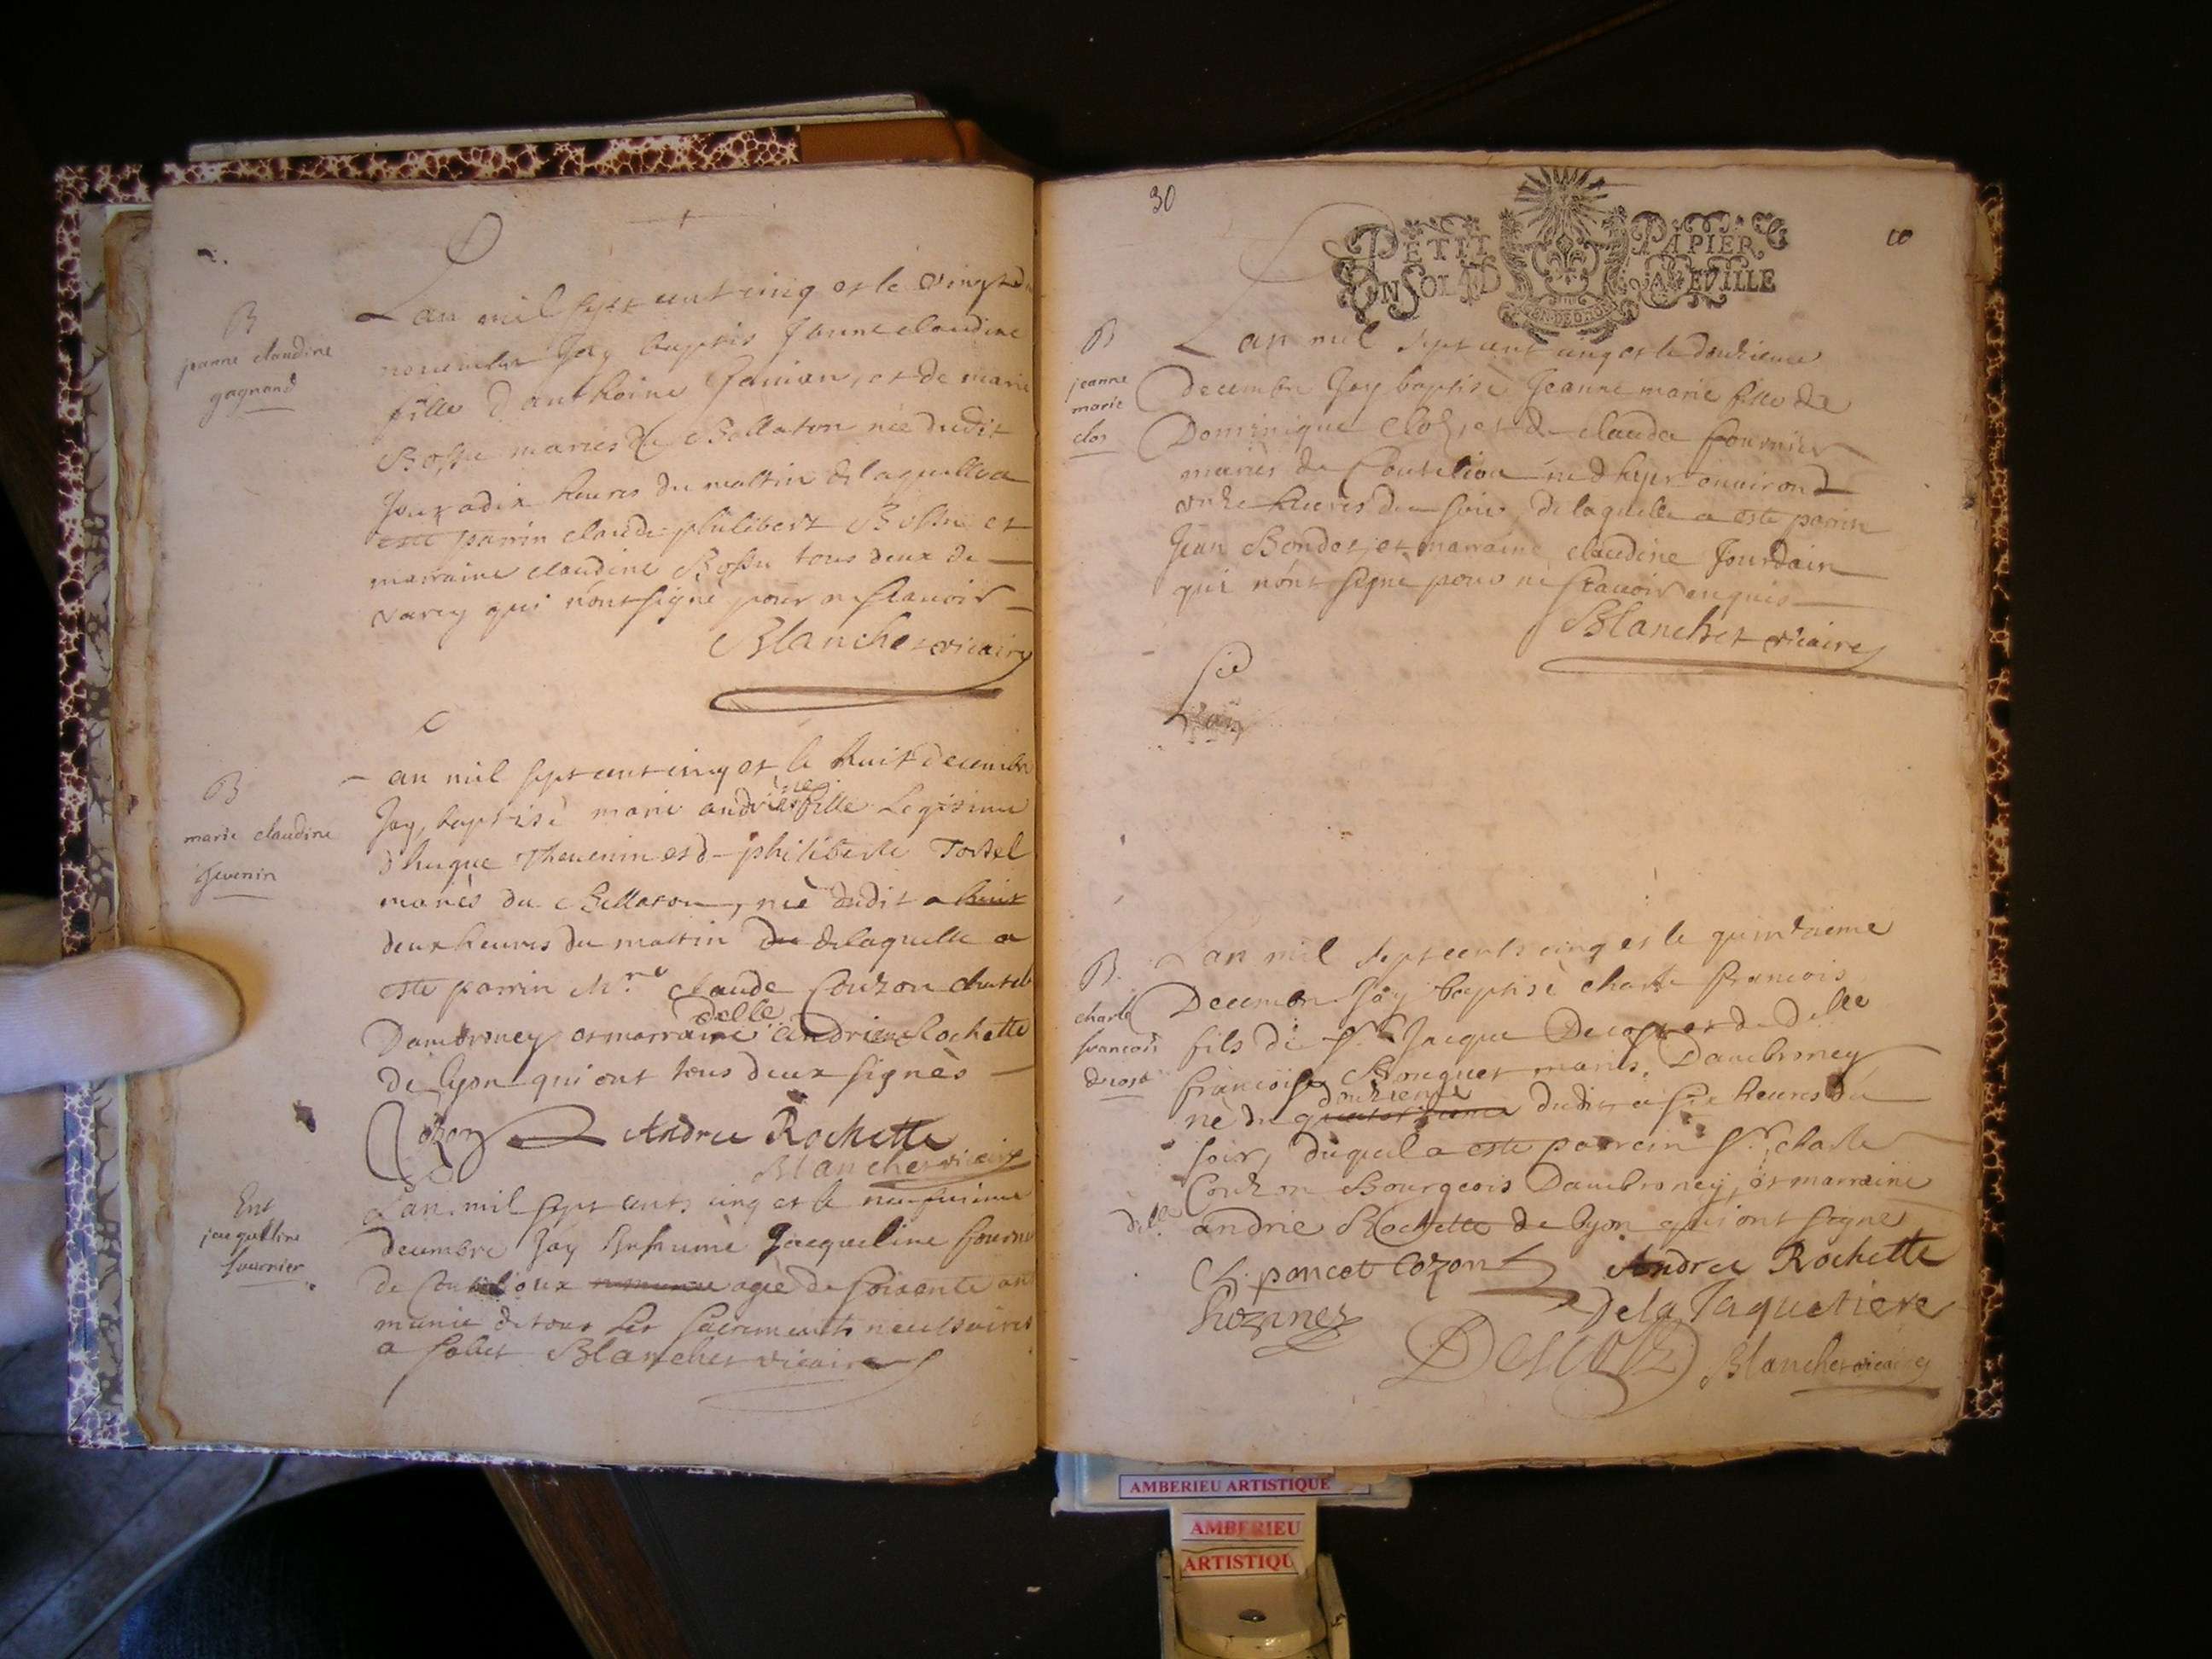 B
jeanne claudine
gagnand
Lan mil sept cent cinq et le vingt
novembre Jay baptisé Janne claudine
fille d'anthoine et de marie
Bossu mariés du Bellaton née dudit
Jour a dix heures du mattin de laquelle a
esté parrin claude philibert Bossu et
marraine claudine Bossu tous deux de
varey qui n'ont signé pour ne scavoir
Blanchet vicaire
B
marie claudine
Jevenin
an mil sept cent cinq et le huit decembre
Jay baptisé marie andriene fille Legitime
d'hugue Thevenin et d philiberte Tortel
mariés du Bellaton, née dudit a huit
deux heures du mattin du de laquelle a
esté parrin M.re claude Couzon chatel
Dambroney et marraine delle andriene Rochette
de lyon qui ont tous deux signés
Cozon Andree Rochette
Blanchet vicaire
Ent
jacqueline
fournier
L'an mil sept cents cinq et le neufvieme
decembre Jay Inhumé Jacqueline fournier
de Coutelioux agée de soixante an
munie de tous les sacrements necessaires
a salut Blanchet vicaire
30
10
PETIT PAPIER
UN SOL LA FEUILLE
B
jeanne
marie
clos
Lan mil sept cent cinq et le douzieme
decembre Jay baptisé Jeanne marie fille de
Dominique Cloz, et de claude fournier
mariés de Coutelioux née d'hyer environ
onze heures du soir, de laquelle a esté parrin
Jean Bondet, et marraine claudine Jourdain
qui n'ont signé pour ne scavoir enquis
Blanchet vicaire
Lan
B.
charle
francois
Lan mil sept cents cinq et le quinzieme
Decembre Jay baptisé charle francois
fils de Sr. Jacque et de delle
francoise mariés, Dambroney
né du quatorzieme douzieme dudit a six heures du
soir, duquel a esté parrein Sr. charle
Couzon Bourgeois Dambroney, et marraine
delle andrie Rochette de lyon qui ont signé
Ch. poncet Cozon Andree Rochette
De la Jaquetiere
Blanchet vicaire
AMBERIEU ARTISTIQUE
AMBERIEU
ARTISTIQU